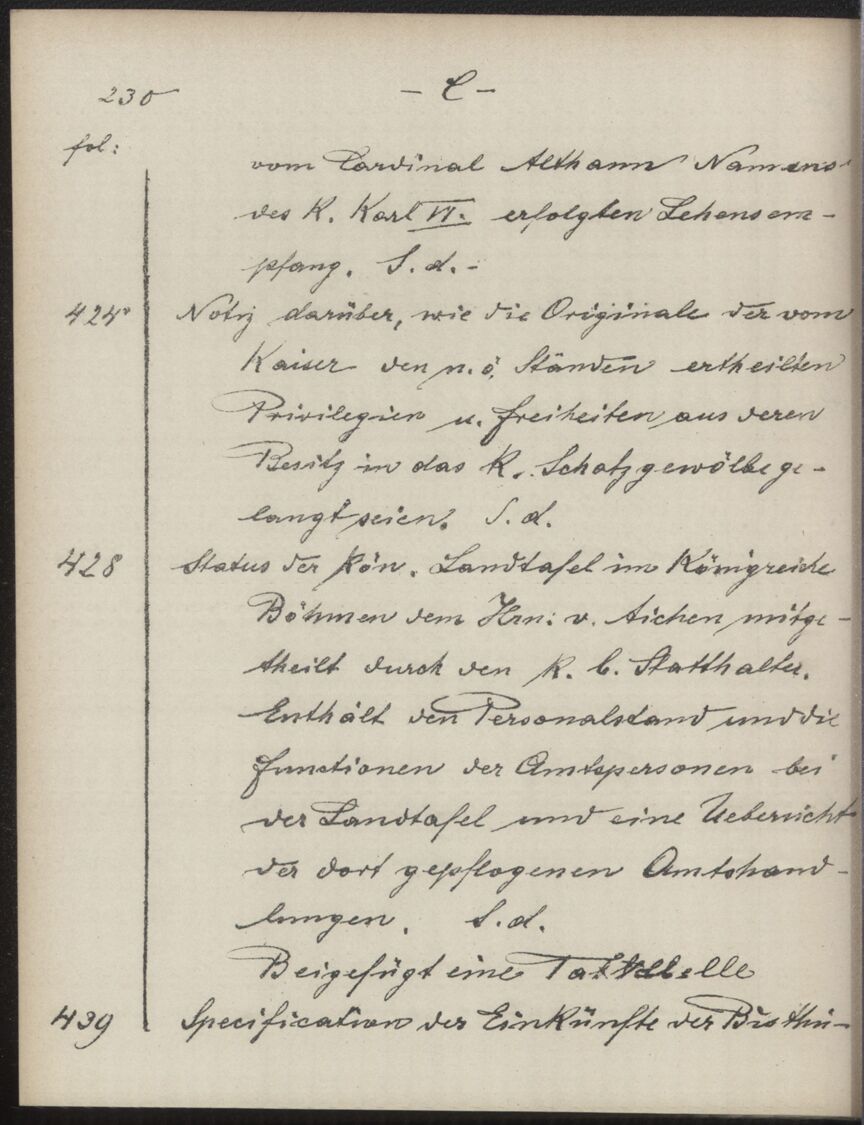 230 — C —
fol:
vom Cardinal Althann Namens
des K. Karl VI. erfolgten Lehensem-
pfang. S. d. -
424 Notiz darüber, wie die Originale der vom
Kaiser den n. ö. Ständen ertheilten
Privilegien u. freiheiten aus deren
Besitz in das k. Schatzgewölbe ge-
langt seien. S. d.
428 Status der kön. Landtafel im Königreiche
Böhmen dem Hrn: v. Aichen mitge-
theilt durch den k. b. Statthalter.
Enthält den Personalstand und die
functionen der Amtspersonen bei
der Landtafel und eine Uebersicht
der dort gepflogenen Amtshand-
lungen. S. d.
Beigefügt eine
439 Specification der Einkünfte der Bisthü-